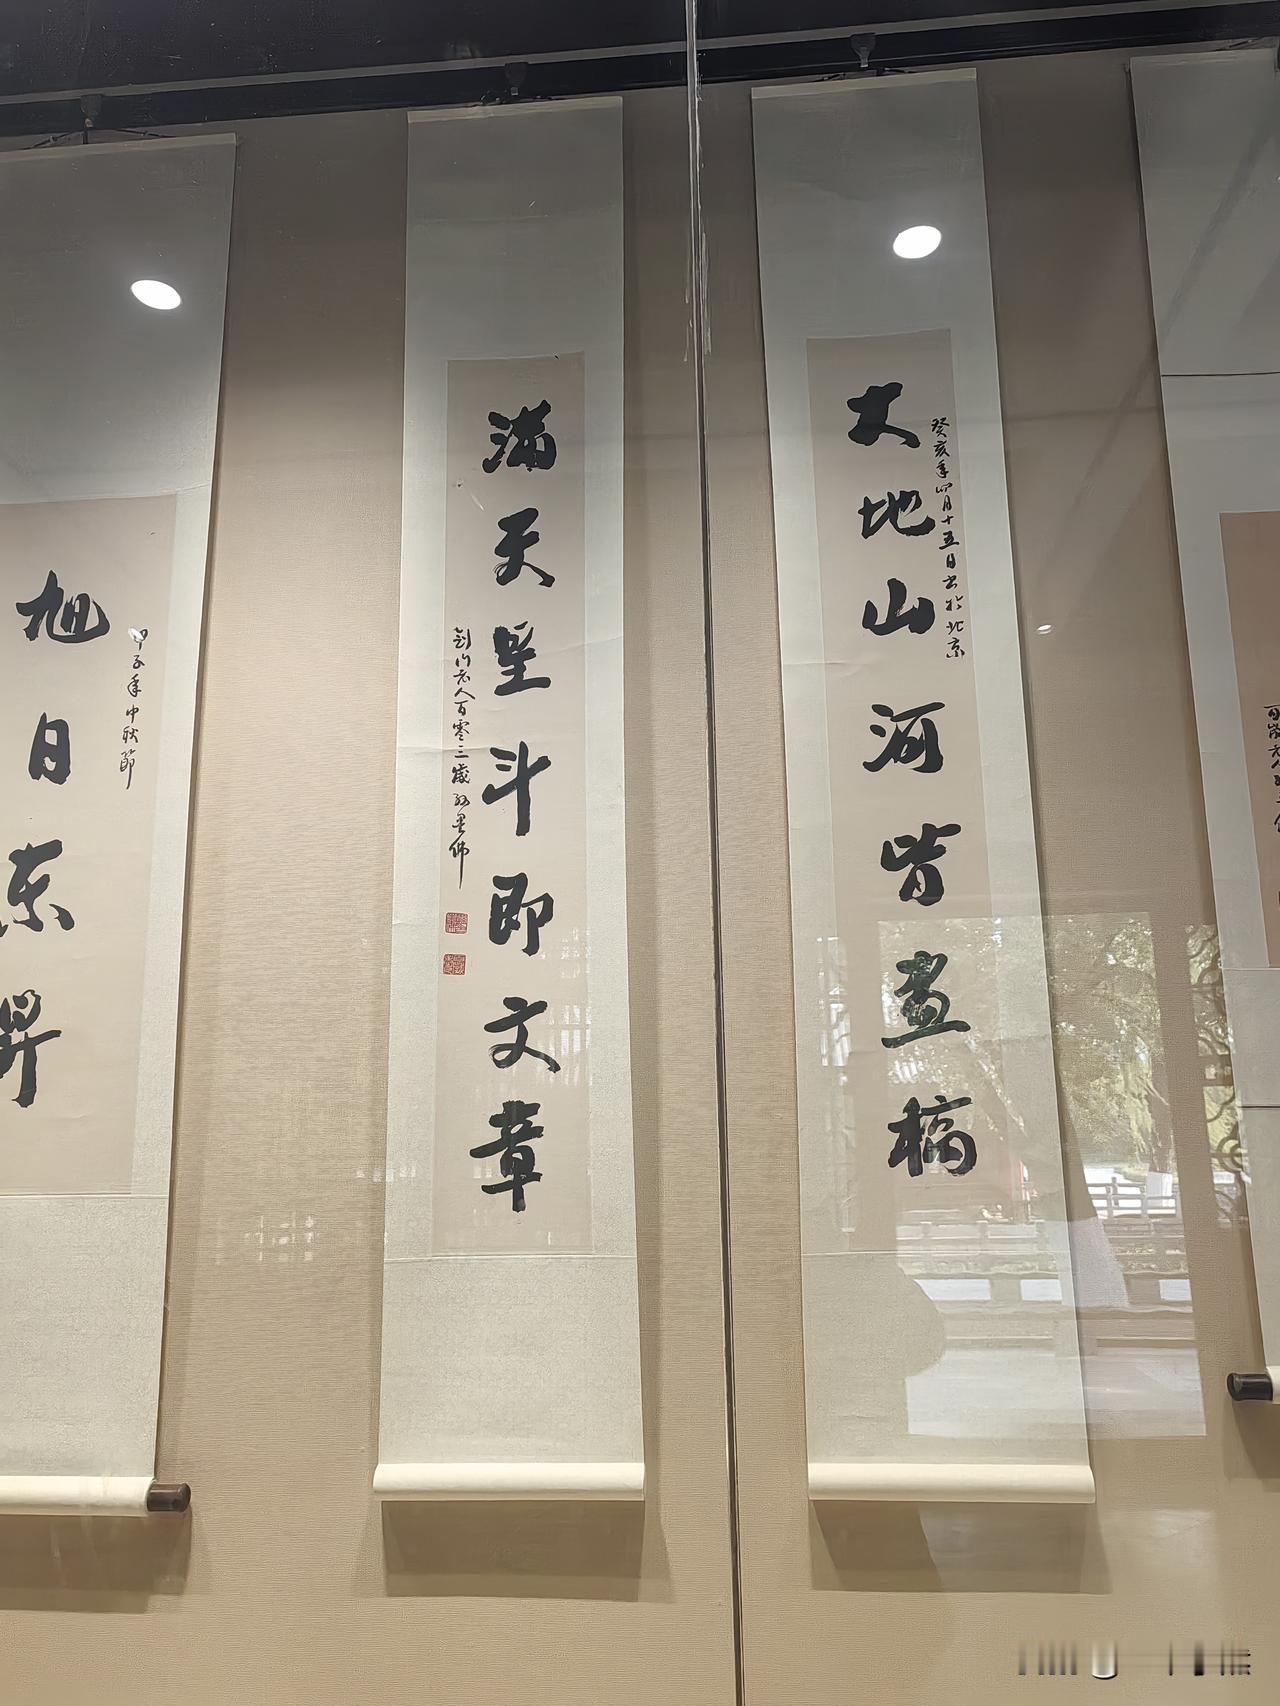 百歲老人
癸亥年四月十五日书於北京
大地山河皆畫稿
滿天星斗即文章
劍门老人百零三歲孙墨佛
甲子年中秋節
旭日东昇